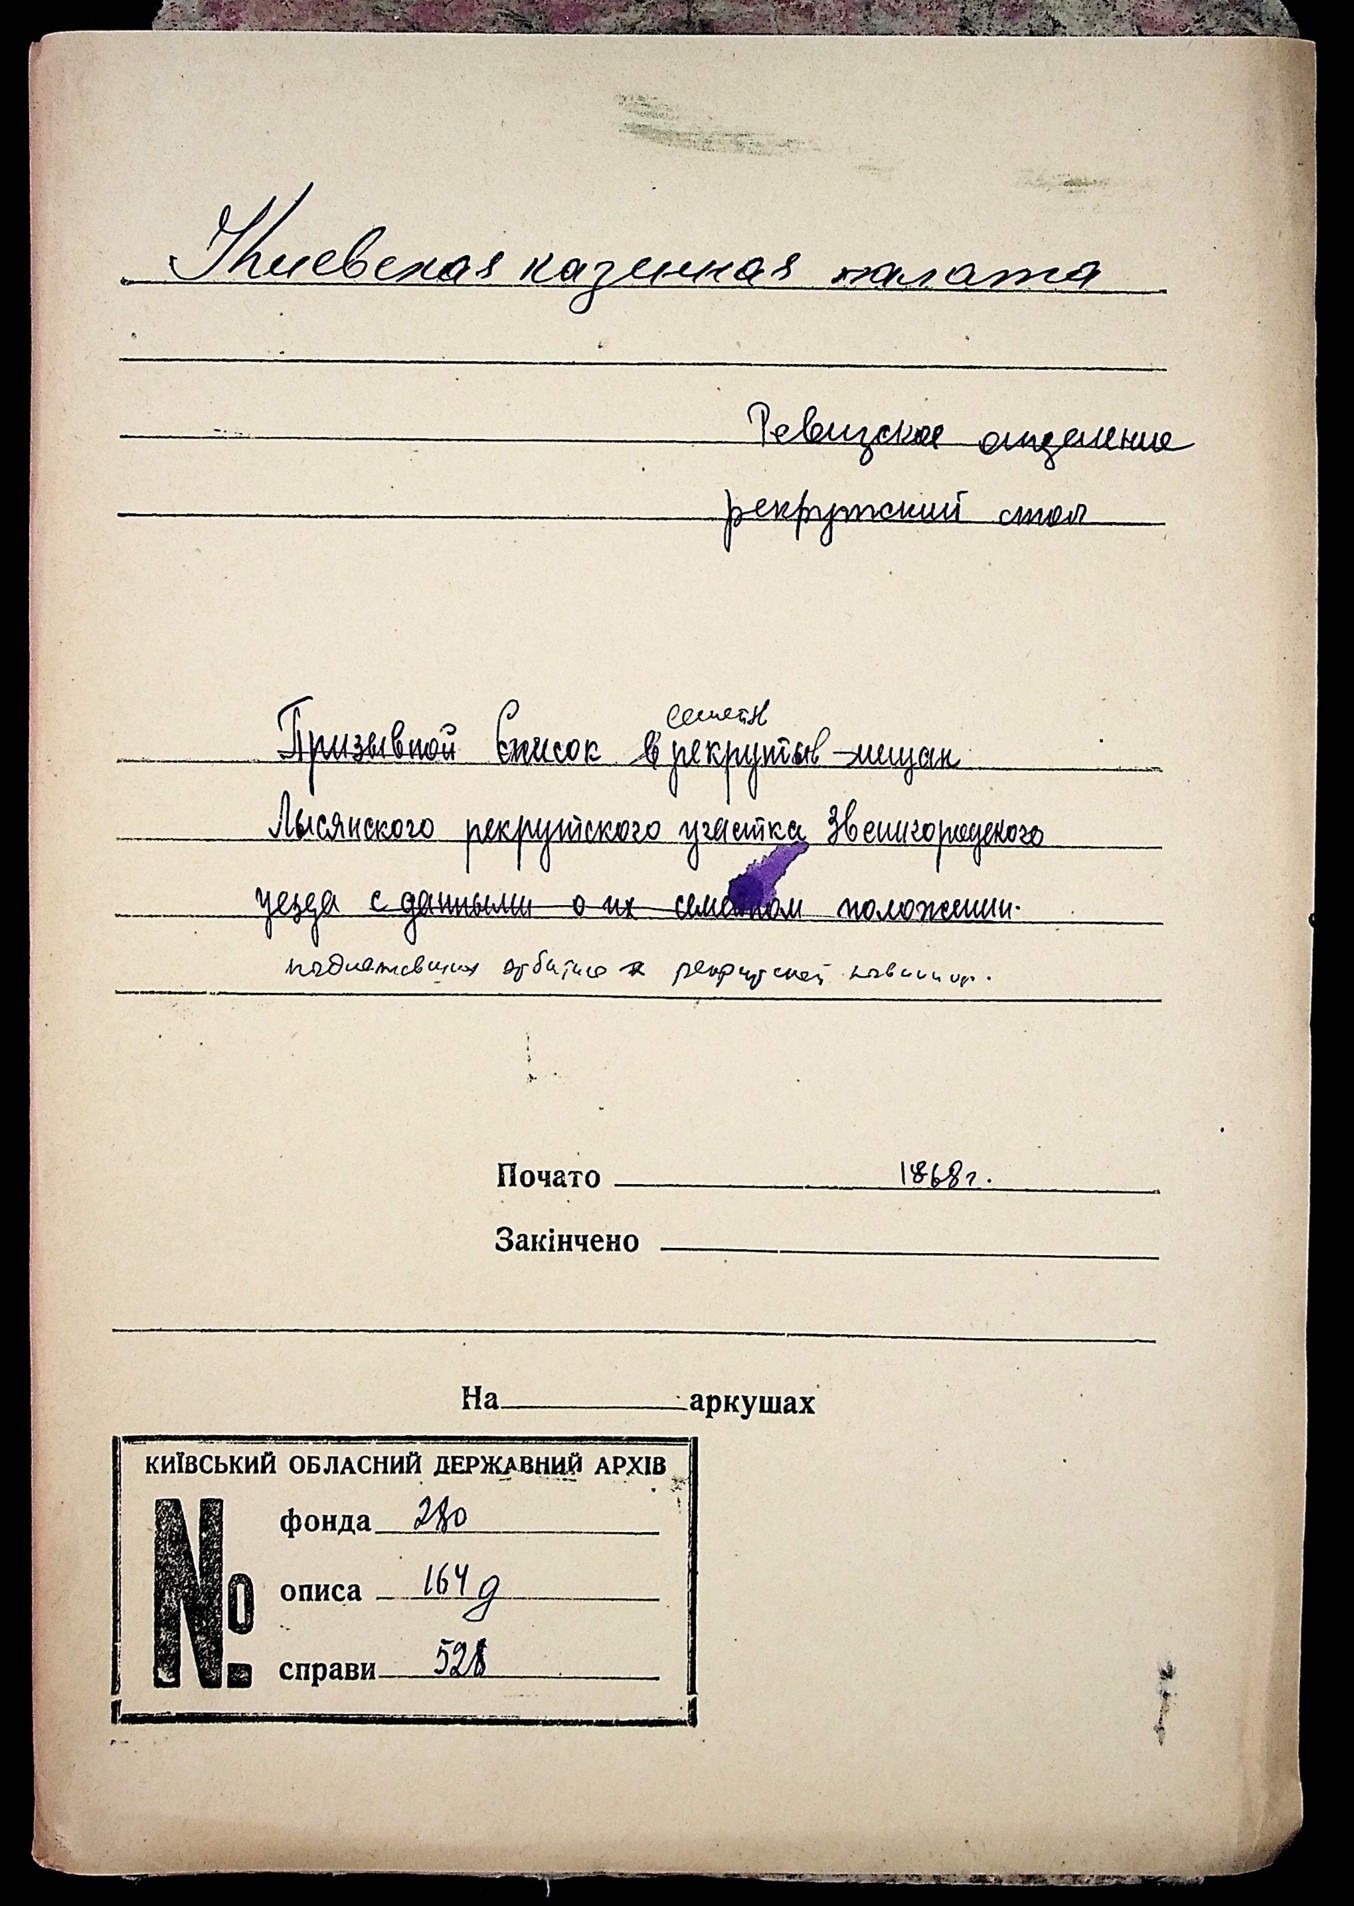 Киевская казенная палата
Ревизское отделение
рекрутский стол
семейн
Призывной Список в рекруты-мещан
Лысянского рекрутского участка Звенигородского
уезда с данными о их семейном положении.
подлежавших отбытию рекрутской повинности.
Почато 1868 г.
Закінчено
На аркушах
КИЇВСЬКИЙ ОБЛАСНИЙ ДЕРЖАВНИЙ АРХІВ
№
фонда 280
описа 164 д
справи 528